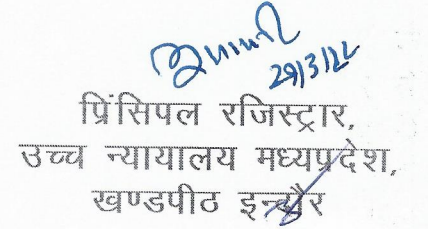 29/3/22
प्रिंसिपल रजिस्ट्रार,
उच्च न्यायालय मध्यप्रदेश,
खण्डपीठ इन्दौर